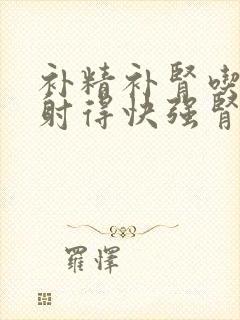 补精补肾喫
射得快强肾
羅懌